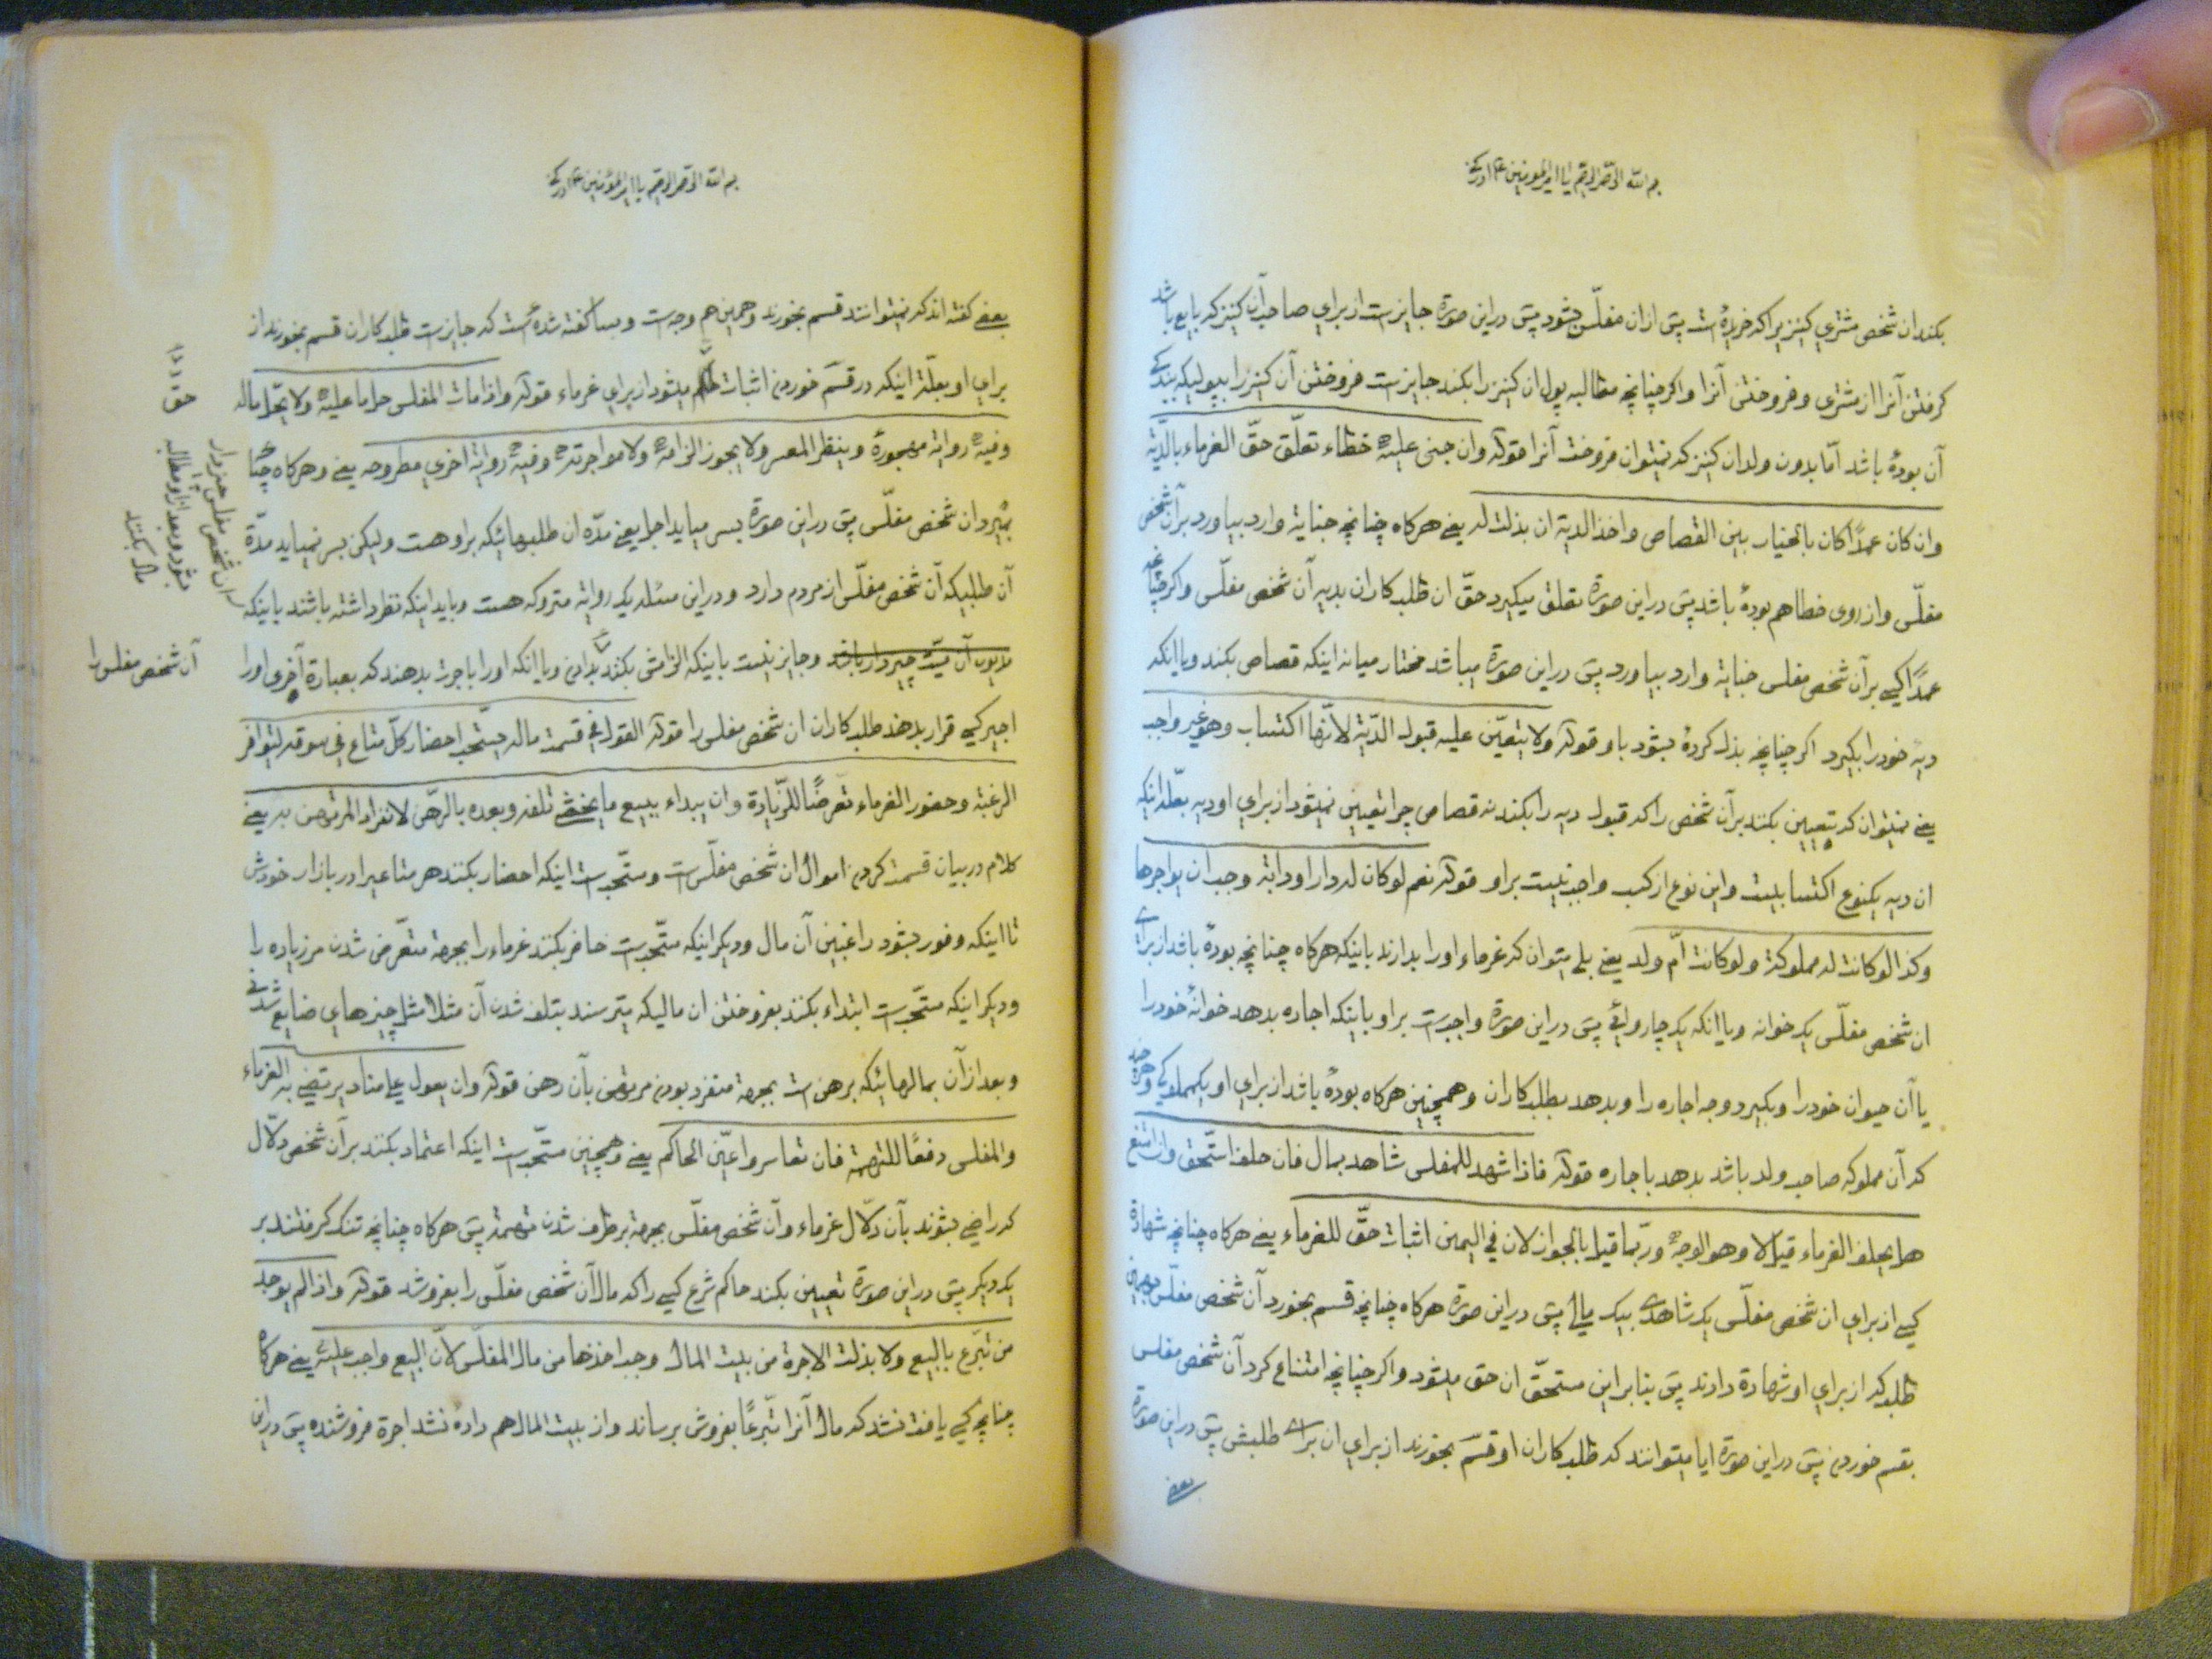 بسم الله الرحمن الرحیم یا امیرالمومنین ع ادرکنی
بکند ان شخص مشتری کنیزیرا که خریده است پس از ان مفلّس بشود پس دراین صورة جایزست از برای صاحب آن کنیز که بایع باشد
کرفتن آنرا از مشتری و فروختن آنرا و اکر چنانچه مطالبه پول ان کنیز را بکند جایزست فروختن آن کنیز را بپولیکه
آن بوده باشد امّا بدون ولد ان کنیز که نمیتوان فروخت آنرا قوله وان جنی علیه خطاء تعلّق حقّ الغرماء بالدّیة
وان کان عمدًا کان بالخیار بین القصاص واخذ الدیة ان بذلت له یعنی هرکاه چنانچه جنایة وارد بیاورد بر آن شخص
مفلّس واز روی خطا هم بوده باشد پس دراین صورة تعلق میکیرد حقّ ان طلب کاران بدیه آن شخص مفلّس واکر چنانچه
عمدًا کسی بر آن شخص مفلس جنایة وارد بیاورد پس دراین صورة میباشد مختار میانه اینکه قصاص بکند ویا انکه
دیه خود را بکیرد اکر چنانچه بذل کرده بشود باو قوله ولا یتعیّن علیه قبول الدّیة لانّها اکتساب وهو غیر واجب
یعنی نمیتوان که تعیین بکنند بر آن شخص را که قبول دیه را بکند نه قصاص چرا تعیین نمیشود از برای او دیه بعلّة اینکه
ان دیه یکنوع اکتسابیست واین نوع از کسب واجب نیست بر او قوله نعم لو کان له دار او دابة وجب ان یواجرها
وکذا لو کانت له مملوکة ولو کانت امّ ولد یعنی بلی میتوان که غرماء اورا بدارند باینکه هرکاه چنانچه بوده باشد از برای
ان شخص مفلّس یک خوانه ویا انکه یک چاروائی پس دراین صورة واجبست بر او باینکه اجاره بدهد خوانهٔ خود را
یا آن حیوان خود را وبکیرد وجه اجاره را وبدهد بطلب کاران وهمچنین هرکاه بوده باشد از برای او یکمملوکی وهرچند
که آن مملوکه صاحب ولد باشد بدهد باجاره قوله فاذا شهد للمفلس شاهد بمال فان حلف استحقّ وان امتنع
هل یحلف الغرماء قیل لا وهو الوجه وربّما قیل بالجواز لان فی الیمین اثبات حقّ للغرماء یعنی هرکاه چنانچه شهادة
کسی از برای ان شخص مفلّس یک شاهدی بیک مالی پس دراین صورة هرکاه چنانچه قسم بخورد آن شخص مفلّس
طلب که از برای او شهادة دادند پس بنابراین مستحقّ ان حق میشود واکر چنانچه امتناع کرد آن شخص مفلس
بقسم خوردن پس دراین صورة ایا میتوانند که طلب کاران او قسم بخورند از برای ان برای طلبش پس دراین صورة
بعضی
بسم الله الرحمن الرحیم یا امیرالمؤمنین ع ادرکنی
بعضی کفته اند که نمیتوانند قسم بخورند وهمین هم وجه ست وبسا کفته شده است که جایزست طلب کاران قسم بخورند از
برای او بعلّة اینکه در قسم خوردن اثبات میشود از برای غرماء قوله واذا مات المفلس حل ما علیه ولا یحل ماله
وفیه روایة مهجورة وینظر المعسر ولا یجوز الزامه ولا مواجرته وفیه روایة اخری مطروحه یعنی وهرکاه چنا
بمیرد ان شخص مفلّس پس دراین صورة بسر میاید اجل یعنی مدّه ان طلبهائیکه بر او هست ولیکن بسر نمیاید مدّة
آن طلبیکه آن شخص مفلّس از مردم دارد ودراین مسئله یک روایة متروکه هست وباید اینکه نظر داشته باشند باینکه
مدیون آن میّت چیردار باشد وجایز نیست باینکه الزامش بکنند بدادن ویا انکه اورا باجرت بدهند که بعبارة آخری اورا
اجیر کسی قرار بدهند طلب کاران ان شخص مفلس را قوله القول فی قسمة ماله یستحب احضار کلّ متاع فی سوقه لتوافر
الرغبة وحضور الغرماء تعرضًا للزّیادة وان یبداء ببیع ما یخشی تلفه وبعده بالرّهن لانفراد المرتهن به یعنی
کلام در بیان قسمة کردن اموال ان شخص مفلّس ست ومستحبّ ست اینکه احضار بکنند هر متاعیرا در بازار خودش
تا اینکه وفور بشود راغبین آن مال ودیکر اینکه مستحبّ ست حاضر بکنند غرماء را بجهة متعرّض شدن مر زیاده را
ودیکر اینکه مستحبّ ست ابتداء بکنند بفروختن ان مالیکه میترسند بتلف شدن آن مثلا مثل چیزهای ضایع شدنی
وبعد از آن بمالهائیکه برهن ست بجهة منفرد بودن مرتهن بآن رهن قوله وان یعول علی مناد یرتضی به الغرماء
والمفلس دفعًا للتهمة فان تعاسروا عیّن الحاکم یعنی وهمچنین مستحبّ ست اینکه اعتماد بکنند بر آن شخص دلّال
که راضی بشوند بآن دلّال غرماء وآن شخص مفلّس بجهة برطرف شدن تهمة پس هرکاه چنانچه تنک کرفتند بر
یکدیکر پس دراین صورة تعیین بکند حاکم شرع کسی را که مال آن شخص مفلّس را بفروشد قوله واذا لم یوجد
من تبرّع بالبیع ولا بذلت الاجرة من بیت المال وجب اخذها من مال المفلّس لانّ البیع واجب علیه یعنی هرکاه
چنانچه کسی یافته نشد که مال آنرا تبرّعًا بفروش برساند واز بیت المال هم داده نشد اجرة فروشنده پس دراین
ان شخص مفلس چیزدار
بشود وبعد از او مطالبه
مال بکنند
حق
آن شخص مفلس را